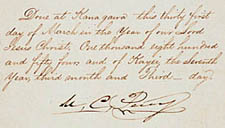 Done at Kanagawa this thirty first
day of March in the Year of our Lord
Jesus Christ, One thousand eight hundred
and fifty four and of Kayei the seventh
Year, third month and Third day
M. C. Perry